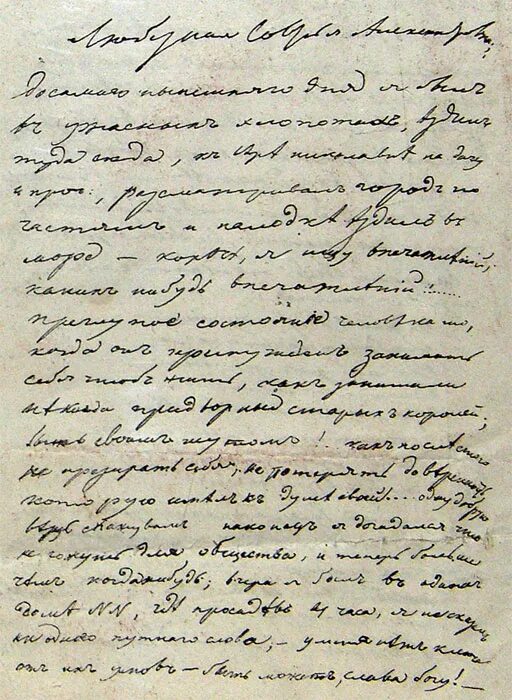 Любезная Софья Александровна;
До самаго нынешняго дня я былъ
въ ужасныхъ хлопотахъ, ѣздилъ
туда сюда, къ Вѣрѣ Николавнѣ на дачу
и проч:, разсматривалъ городъ по
частямъ и на лодкѣ ѣздилъ въ
море – короче, я ищу впечатлѣній,
какихъ нибудь впечатлѣній!......
преглупое состояніе человѣка то,
когда онъ принужденъ занимать
себя чтобъ жить, какъ занимали
нѣкогда придворные старыхъ королей;
быть своимъ шутомъ!.. какъ послѣ этого
не презирать себя; не потерять довѣренность,
которую имѣлъ къ душѣ своей... одну добрую
вещь скажу вамъ: наконецъ я догадался что
не гожусь для общества, и теперь больше
чѣмъ когда нибудь; вчера я былъ въ одномъ
домѣ NN, гдѣ просидѣвъ 4 часа, я не сказалъ
ни одного путнаго слова; – у меня нѣтъ ключа
отъ ихъ умовъ – быть можетъ, слава богу! –